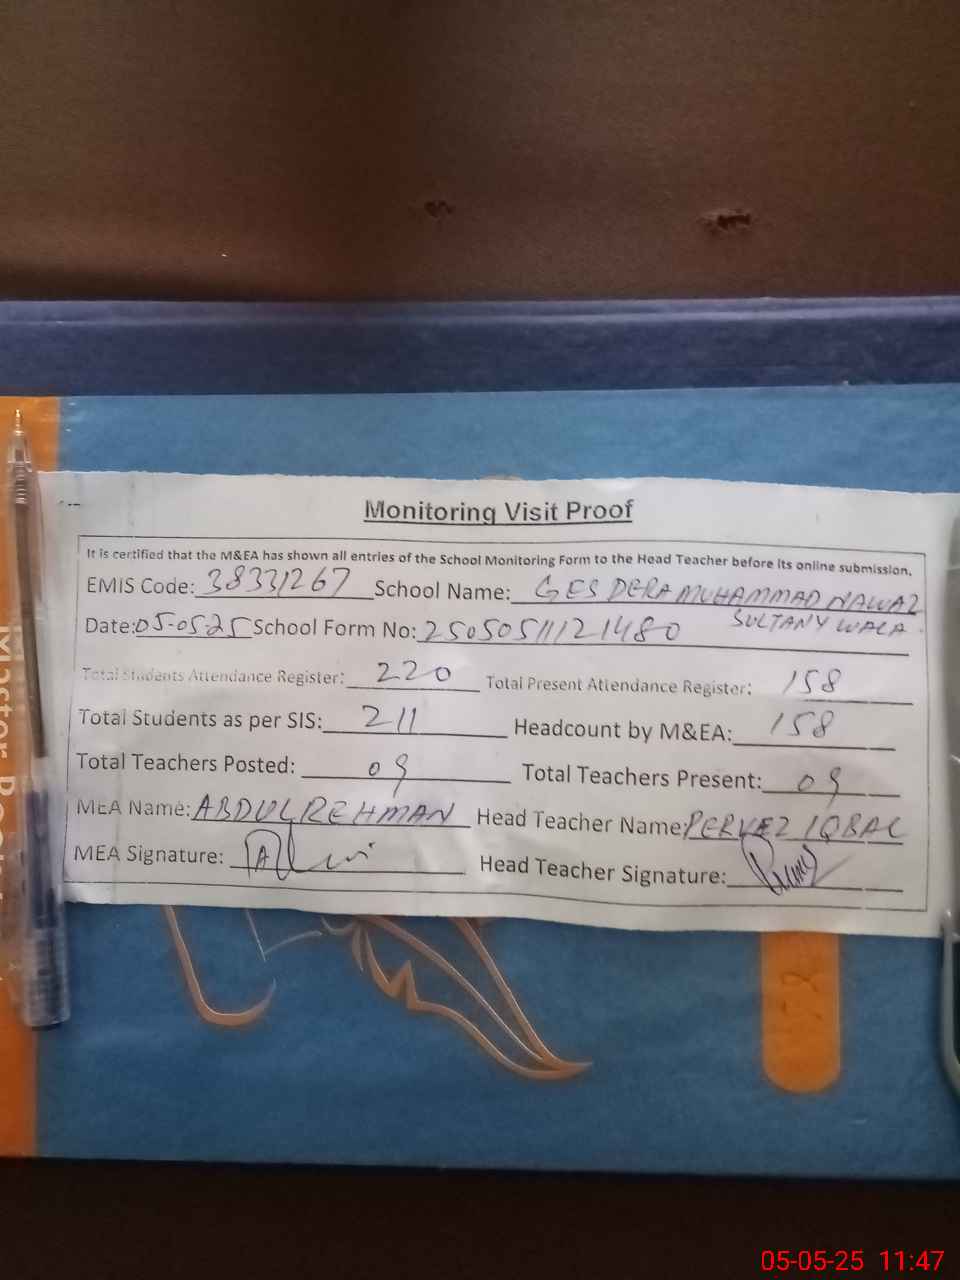 Monitoring Visit Proof
It is certified that the M&EA has shown all entries of the School Monitoring Form to the Head Teacher before its online submission.
EMIS Code: 38331267 School Name: GES DERA MUHAMMAD NAWAZ
SULTANY WALA
Date: 05-0525 School Form No: 25050511121480
Total Students Attendance Register: 220 Total Present Attendance Register: 158
Total Students as per SIS: 211 Headcount by M&EA: 158
Total Teachers Posted: 09 Total Teachers Present: 09
MEA Name: ABDUL REHMAN Head Teacher Name: PERVEZ IQBAL
MEA Signature: Head Teacher Signature:
05-05-25 11:47